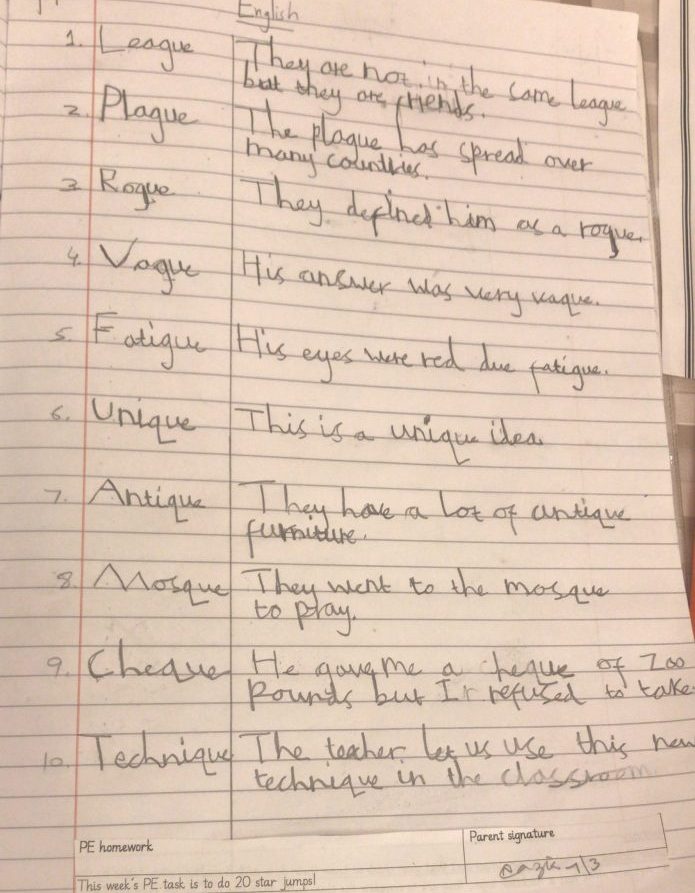 English
1. League They are not in the same league
but they are friends.
2. Plague The plague has spread over
many countries.
3 Rogue They defined him as a rogue.
4. Vague His answer was very vague.
5. Fatigue His eyes were red due fatigue.
6. Unique This is a unique idea
7. Antique They have a lot of antique
furniture.
8. Mosque They went to the mosque
to pray.
9. Cheque He gave me a cheque of 700
Pounds but I refused to take
10. Technique The teacher let us use this new
technique in the classroom
PE homework Parent signature
This week's PE task is to do 20 star jumps!